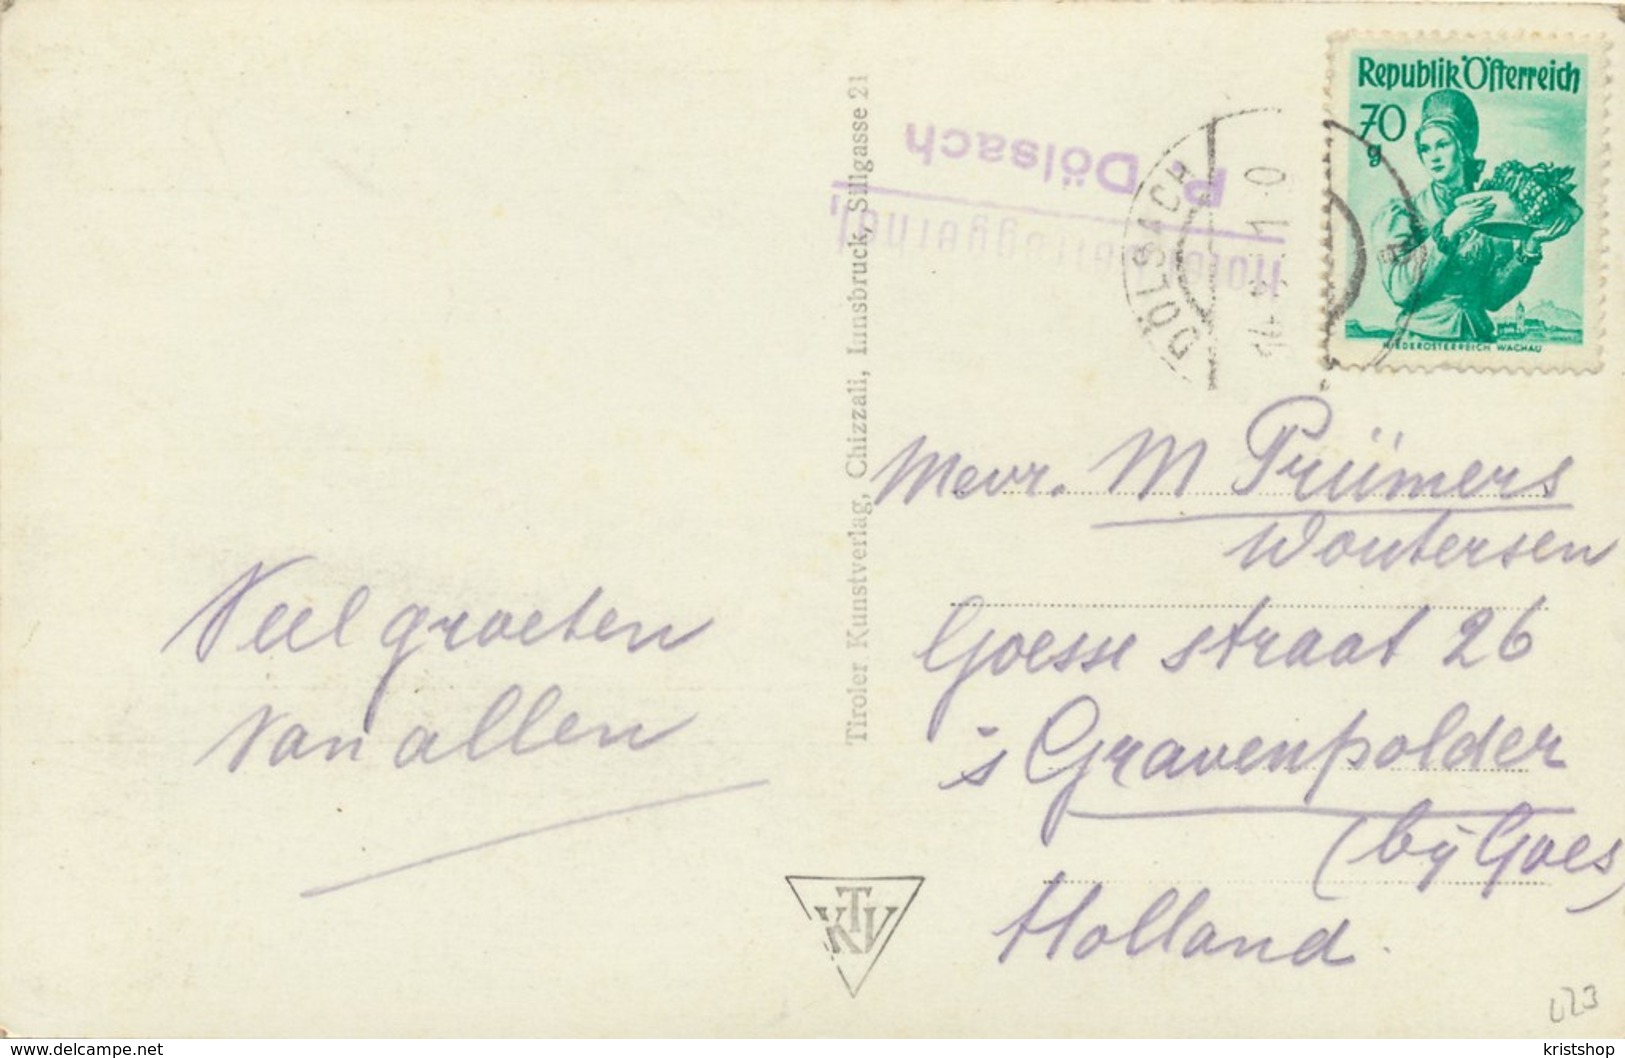 Republik Österreich
70
g
NIEDERÖSTERREICH WACHAU
DÖLSACH
P. Dölsach
Tiroler Kunstverlag, Chizzali, Innsbruck, Sillgasse 21
Veel groeten
van allen
Mevr. M Prümers
Woutersen
Goesse straat 26
's Gravenpolder
(bij Goes)
Holland.
KTV
www.delcampe.net
kristshop